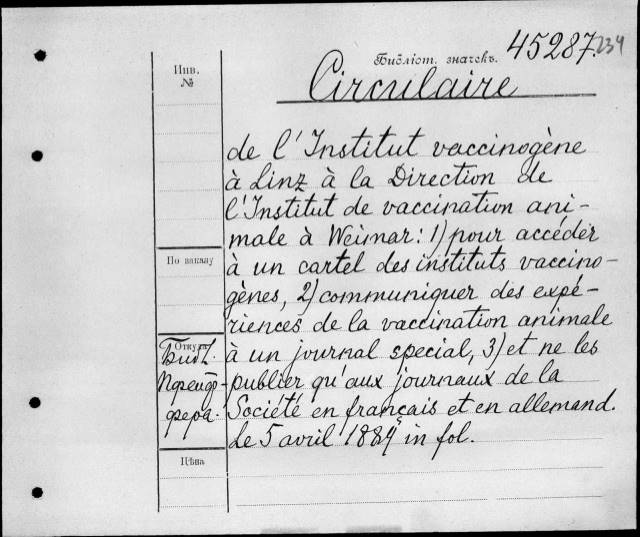 Библіот. значекъ. 45287.
234
Инв.
№
Circulaire
de l'Institut vaccinogène
à Linz à la Direction de
l'Institut de vaccination ani-
male à Weimar: 1) pour accéder
По заказу
à un cartel des instituts vaccino-
gènes, 2) communiquer des expé-
riences de la vaccination animale
Откуда
Библ.
Пфейф-
фера.
à un journal special, 3) et ne les
publier qu'aux journaux de la
Société en français et en allemand.
Le 5 avril 1884 in fol.
Цѣна